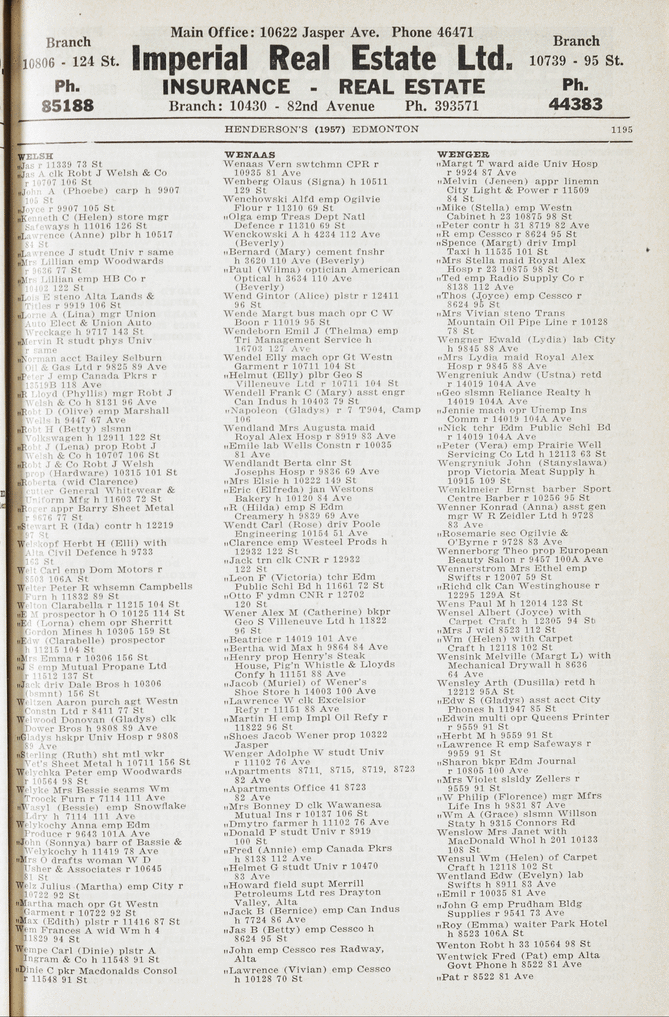 Main Office: 10622 Jasper Ave. Phone 46471
Branch
10806 - 124 St.
Ph.
85188
Imperial Real Estate Ltd.
INSURANCE - REAL ESTATE
Branch: 10430 - 82nd Avenue Ph. 393571
Branch
10739 - 95 St.
Ph.
44383
HENDERSON'S (1957) EDMONTON 1195
WELSH
„Jas r 11339 73 St
„Jas A clk Robt J Welsh & Co
r 10707 106 St
„John A (Phoebe) carp h 9907
105 St
„Joyce r 9907 105 St
„Kenneth C (Helen) store mgr
Safeways h 11016 126 St
„Lawrence (Anne) plbr h 10517
84 St
„Lawrence J studt Univ r same
„Mrs Lillian emp Woodwards
r 9636 77 St
„Mrs Lillian emp HB Co r
10402 122 St
„Lois E steno Alta Lands &
Titles r 9919 106 St
„Lorne A (Lina) mgr Union
Auto Elect & Union Auto
Wreckage h 9717 143 St
„Mervin R studt phys Univ
r same
„Norman acct Bailey Selburn
Oil & Gas Ltd r 9825 89 Ave
„Peter J emp Canada Pkrs r
12519B 118 Ave
„R Lloyd (Phyllis) mgr Robt J
Welsh & Co h 8131 96 Ave
„Robt D (Olive) emp Marshall
Wells h 9447 67 Ave
„Robt H (Betty) slsmn
Volkswagen h 12911 122 St
„Robt J (Lena) prop Robt J
Welsh & Co h 10707 106 St
„Robt J & Co Robt J Welsh
prop (Hardware) 10315 101 St
„Roberta (wid Clarence)
cutter General Whitewear &
Uniform Mfg h 11603 72 St
„Roger appr Barry Sheet Metal
r 9676 77 St
„Stewart R (Ida) contr h 12219
87 St
Welskopf Herbt H (Elli) with
Alta Civil Defence h 9733
163 St
Welt Carl emp Dom Motors r
8503 106A St
Welter Peter R whsemn Campbells
Furn h 11832 89 St
Welton Clarabella r 11215 104 St
„E M prospector h O 10125 114 St
„Ed (Lorna) chem opr Sherritt
Gordon Mines h 10305 159 St
„Edw (Clarabelle) prospector
h 11215 104 St
„Mrs Emma r 10306 156 St
„J S emp Mutual Propane Ltd
r 11512 137 St
„Jack driv Dale Bros h 10306
(bsmnt) 156 St
Weltzen Aaron purch agt Westn
Constn Ltd r 8411 77 St
Welwood Donovan (Gladys) clk
Dower Bros h 9808 89 Ave
„Gladys hskpr Univ Hosp r 9808
89 Ave
„Sterling (Ruth) sht mtl wkr
Vet's Sheet Metal h 10711 156 St
Welychka Peter emp Woodwards
r 10564 98 St
Welyke Mrs Bessie seams Wm
Troock Furn r 7114 111 Ave
„Wasyl (Bessie) emp Snowflake
Ldry h 7114 111 Ave
Welykochy Anna emp Edm
Produce r 9643 101A Ave
„John (Sonnya) barr of Bassie &
Welykochy h 11419 78 Ave
„Mrs O drafts woman W D
Usher & Associates r 10645
81 St
Welz Julius (Martha) emp City r
10722 92 St
„Martha mach opr Gt Westn
Garment r 10722 92 St
„Max (Edith) plstr r 11416 87 St
Wem Frances A wid Wm h 4
11829 94 St
Wempe Carl (Dinie) plstr A
Ingram & Co h 11548 91 St
„Dinie C pkr Macdonalds Consol
r 11548 91 St
WENAAS
Wenaas Vern swtchmn CPR r
10935 81 Ave
Wenberg Olaus (Signa) h 10511
129 St
Wenchowski Alfd emp Ogilvie
Flour r 11310 69 St
„Olga emp Treas Dept Natl
Defence r 11310 69 St
Wenckowski A h 4234 112 Ave
(Beverly)
„Bernard (Mary) cement fnshr
h 3620 110 Ave (Beverly)
„Paul (Wilma) optician American
Optical h 3634 110 Ave
(Beverly)
Wend Gintor (Alice) plstr r 12411
96 St
Wende Margt bus mach opr C W
Boon r 11019 95 St
Wendeborn Emil J (Thelma) emp
Tri Management Service h
16703 127 Ave
Wendel Elly mach opr Gt Westn
Garment r 10711 104 St
„Helmut (Elly) plbr Geo S
Villeneuve Ltd r 10711 104 St
Wendell Frank C (Mary) asst engr
Can Indus h 10403 79 St
„Napoleon (Gladys) r 7 T904, Camp
106
Wendland Mrs Augusta maid
Royal Alex Hosp r 8919 83 Ave
„Emile lab Wells Constn r 10035
81 Ave
Wendlandt Berta clnr St
Josephs Hosp r 9836 69 Ave
„Mrs Elsie h 10222 149 St
„Eric (Elfreda) jan Westons
Bakery h 10120 84 Ave
„R (Hilda) emp S Edm
Creamery h 9839 69 Ave
Wendt Carl (Rose) driv Poole
Engineering 10154 51 Ave
„Clarence emp Westeel Prods h
12932 122 St
„Jack trn clk CNR r 12932
122 St
„Leon F (Victoria) tchr Edm
Public Schl Bd h 11661 72 St
„Otto F ydmn CNR r 12702
120 St
Wener Alex M (Catherine) bkpr
Geo S Villeneuve Ltd h 11822
96 St
„Beatrice r 14019 101 Ave
„Bertha wid Max h 9864 84 Ave
„Henry prop Henry's Steak
House, Pig'n Whistle & Lloyds
Confy h 11151 88 Ave
„Jacob (Muriel) of Wener's
Shoe Store h 14003 100 Ave
„Lawrence W clk Excelsior
Refy r 11151 88 Ave
„Martin H emp Impl Oil Refy r
11822 96 St
„Shoes Jacob Wener prop 10322
Jasper
Wenger Adolphe W studt Univ
r 11102 76 Ave
„Apartments 8711, 8715, 8719, 8723
82 Ave
„Apartments Office 41 8723
82 Ave
„Mrs Bonney D clk Wawanesa
Mutual Ins r 10137 106 St
„Dmytro farmer h 11102 76 Ave
„Donald P studt Univ r 8919
100 St
„Fred (Annie) emp Canada Pkrs
h 8138 112 Ave
„Helmet G studt Univ r 10470
83 Ave
„Howard field supt Merrill
Petroleums Ltd res Drayton
Valley, Alta
„Jack B (Bernice) emp Can Indus
h 7724 86 Ave
„Jas B (Betty) emp Cessco h
8624 95 St
„John emp Cessco res Radway,
Alta
„Lawrence (Vivian) emp Cessco
h 10128 70 St
WENGER
„Margt T ward aide Univ Hosp
r 9924 87 Ave
„Melvin (Jeneen) appr linemn
City Light & Power r 11509
84 St
„Mike (Stella) emp Westn
Cabinet h 23 10875 98 St
„Peter contr h 31 8719 82 Ave
„R emp Cessco r 8624 95 St
„Spence (Margt) driv Impl
Taxi h 11535 101 St
„Mrs Stella maid Royal Alex
Hosp r 23 10875 98 St
„Ted emp Radio Supply Co r
8138 112 Ave
„Thos (Joyce) emp Cessco r
8624 95 St
„Mrs Vivian steno Trans
Mountain Oil Pipe Line r 10128
78 St
Wengner Ewald (Lydia) lab City
h 9845 88 Ave
„Mrs Lydia maid Royal Alex
Hosp r 9845 88 Ave
Wengreniuk Andw (Ustna) retd
r 14019 104A Ave
„Geo slsmn Reliance Realty h
14019 104A Ave
„Jennie mach opr Unemp Ins
Comm r 14019 104A Ave
„Nick tchr Edm Public Schl Bd
r 14019 104A Ave
„Peter (Vera) emp Prairie Well
Servicing Co Ltd h 12113 63 St
Wengryniuk John (Stanyslawa)
prop Victoria Meat Supply h
10915 109 St
Wenklmeier Ernst barber Sport
Centre Barber r 10256 95 St
Wenner Konrad (Anna) asst gen
mgr W R Zeidler Ltd h 9728
83 Ave
„Rosemarie sec Ogilvie &
O'Byrne r 9728 83 Ave
Wennerborg Theo prop European
Beauty Salon r 9457 100A Ave
Wennerstrom Mrs Ethel emp
Swifts r 12007 59 St
„Richd clk Can Westinghouse r
12295 129A St
Wens Paul M h 12014 123 St
Wensel Albert (Joyce) with
Carpet Craft h 12305 94 St
„Mrs J wid 8523 112 St
„Wm (Helen) with Carpet
Craft h 12118 102 St
Wensink Melville (Margt L) with
Mechanical Drywall h 8636
64 Ave
Wensley Arth (Dusilla) retd h
12212 95A St
„Edw S (Gladys) asst acct City
Phones h 11947 85 St
„Edwin multi opr Queens Printer
r 9559 91 St
„Herbt M h 9559 91 St
„Lawrence R emp Safeways r
9959 91 St
„Sharon bkpr Edm Journal
r 10805 100 Ave
„Mrs Violet slsldy Zellers r
9559 91 St
„W Philip (Florence) mgr Mfrs
Life Ins h 9831 87 Ave
„Wm A (Grace) slsmn Willson
Staty h 9315 Connors Rd
Wenslow Mrs Janet with
MacDonald Whol h 201 10133
108 St
Wensul Wm (Helen) of Carpet
Craft h 12118 102 St
Wentland Edw (Evelyn) lab
Swifts h 8911 83 Ave
„Emil r 10035 81 Ave
„John G emp Prudham Bldg
Supplies r 9541 73 Ave
„Roy (Emma) waiter Park Hotel
h 8523 106A St
Wenton Robt h 33 10564 98 St
Wentwick Fred (Pat) emp Alta
Govt Phone h 8522 81 Ave
„Pat r 8522 81 Ave